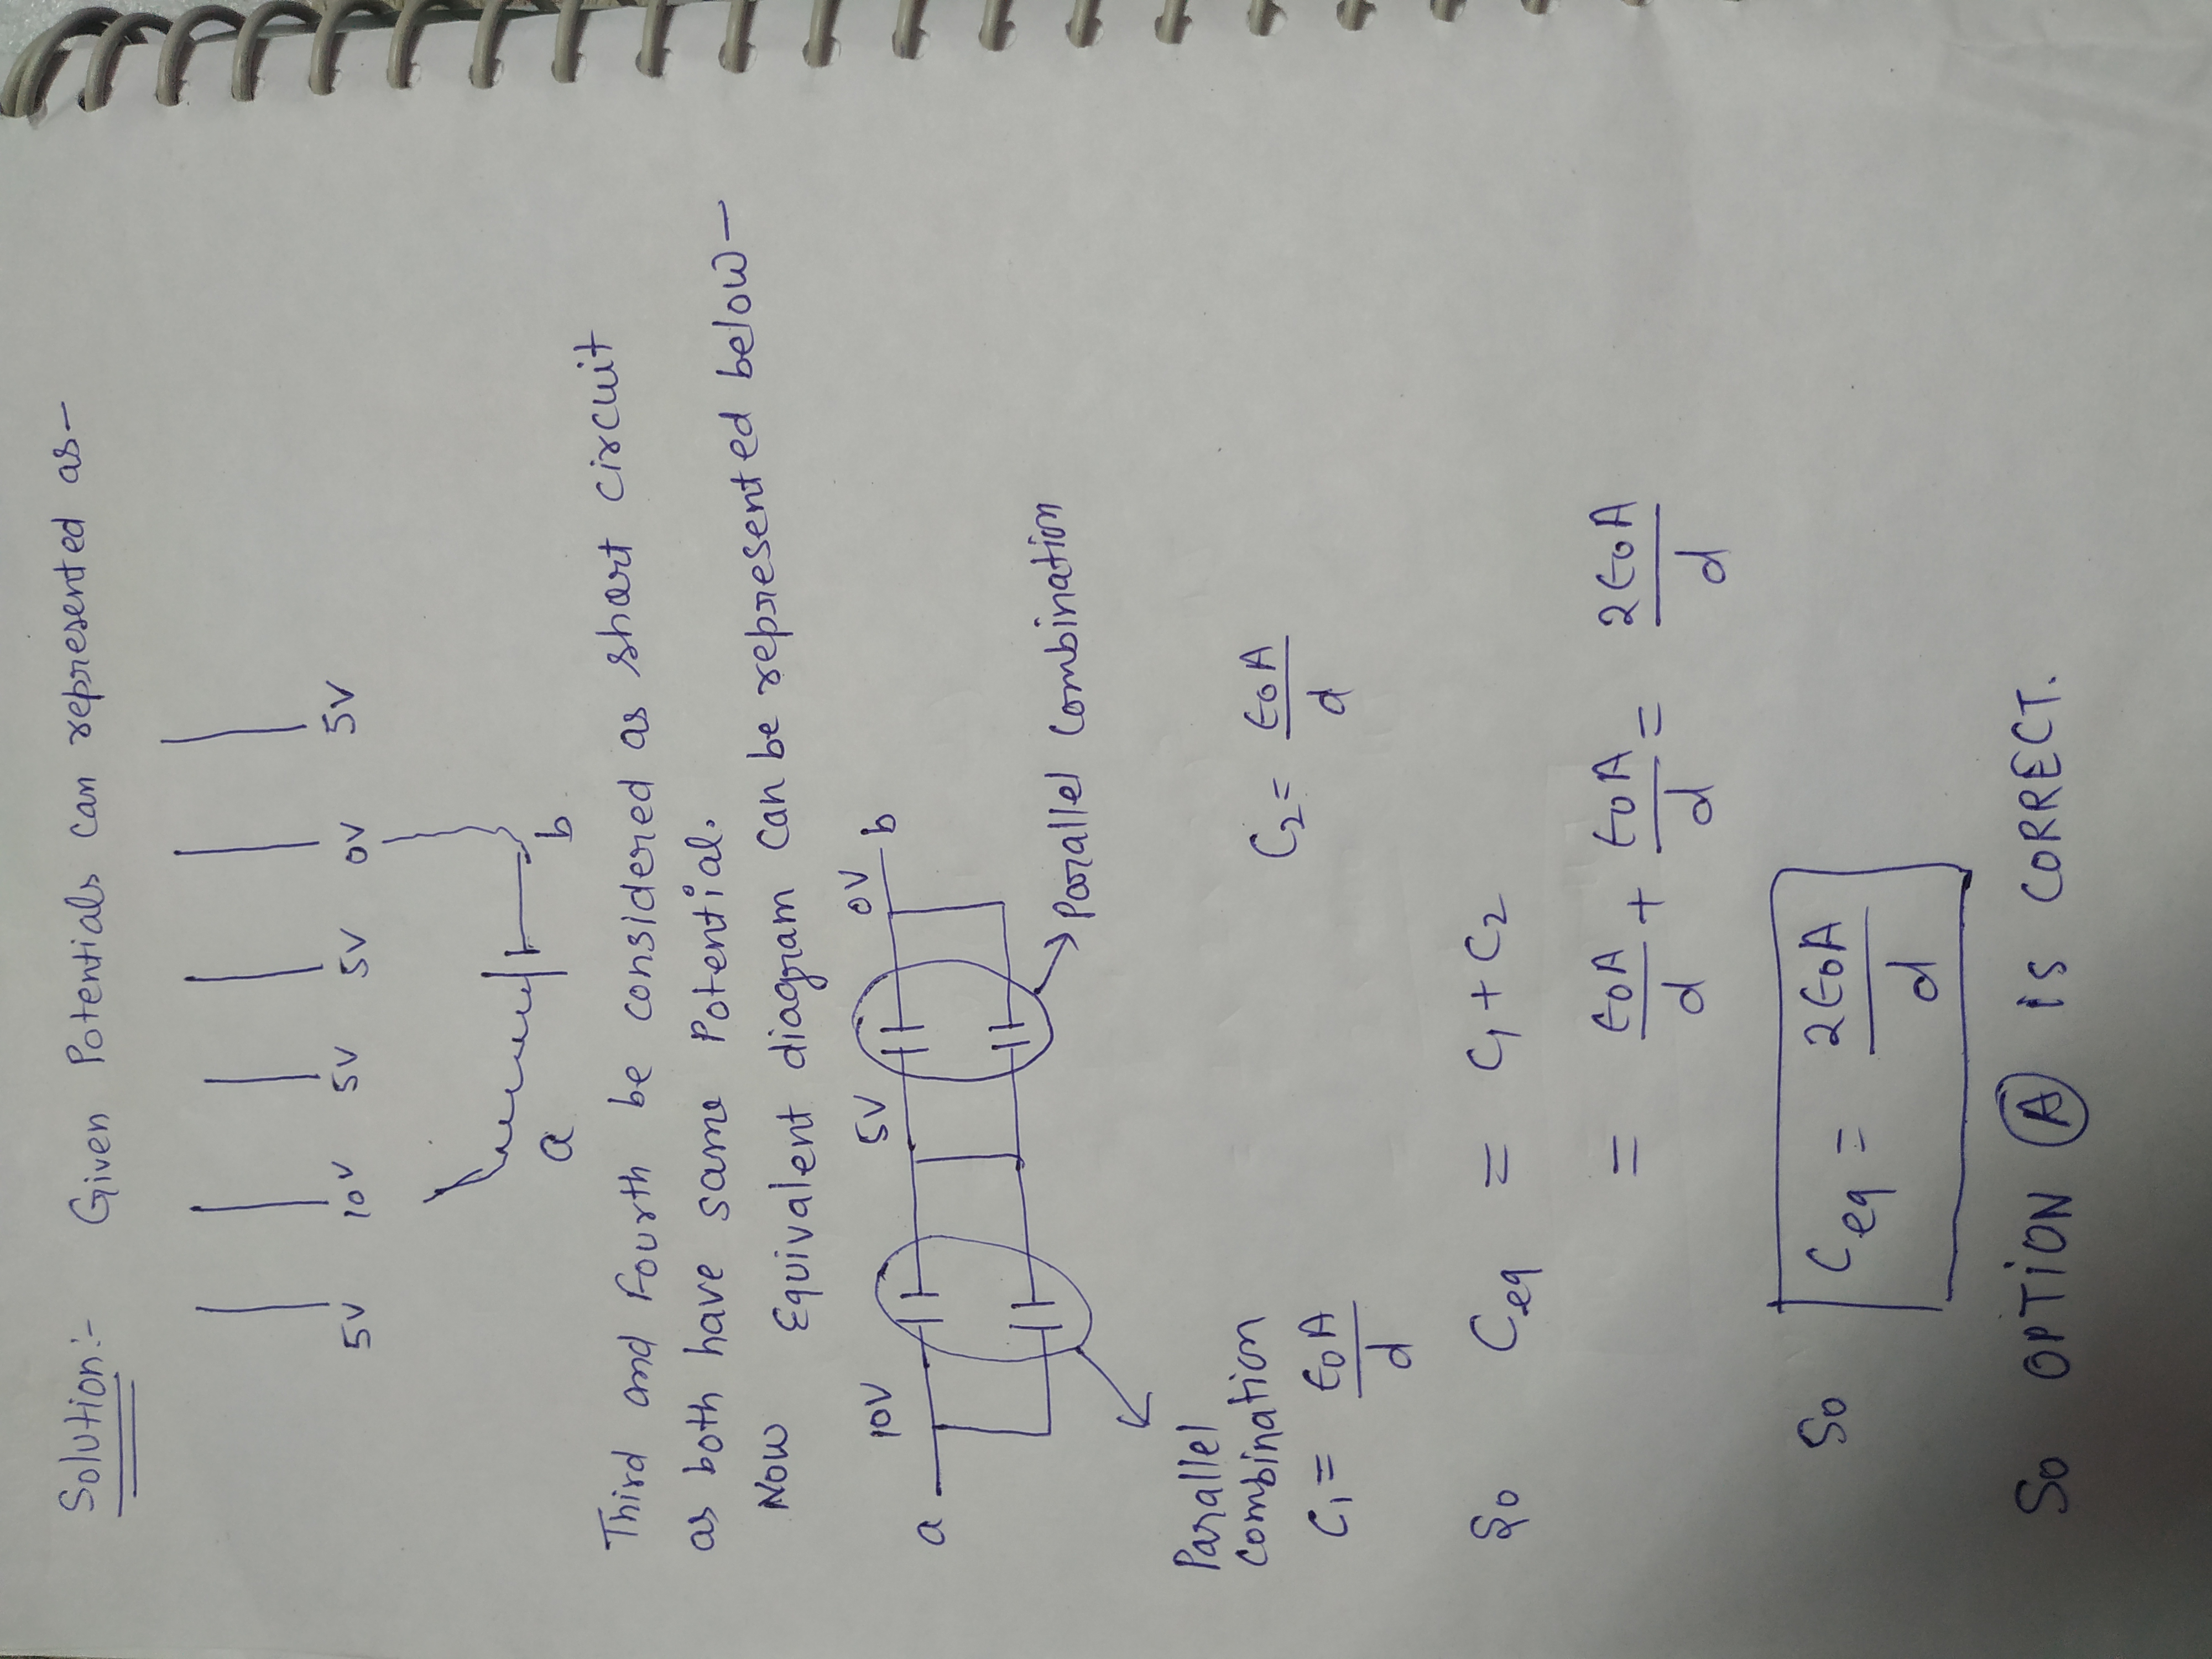 Solution:- Given Potentials can represented as-
5V 10V 5V 5V 0V 5V
a b
Third and Fourth be considered as short circuit
as both have same Potential.
Now Equivalent diagram can be represented below-
10V 5V 0V
a b
Parallel Combination
Parallel
Combination
C₁ = ε₀A/d C₂ = ε₀A/d
So Ceq = C₁ + C₂
= ε₀A/d + ε₀A/d = 2ε₀A/d
So Ceq = 2ε₀A/d
So OPTION A IS CORRECT.